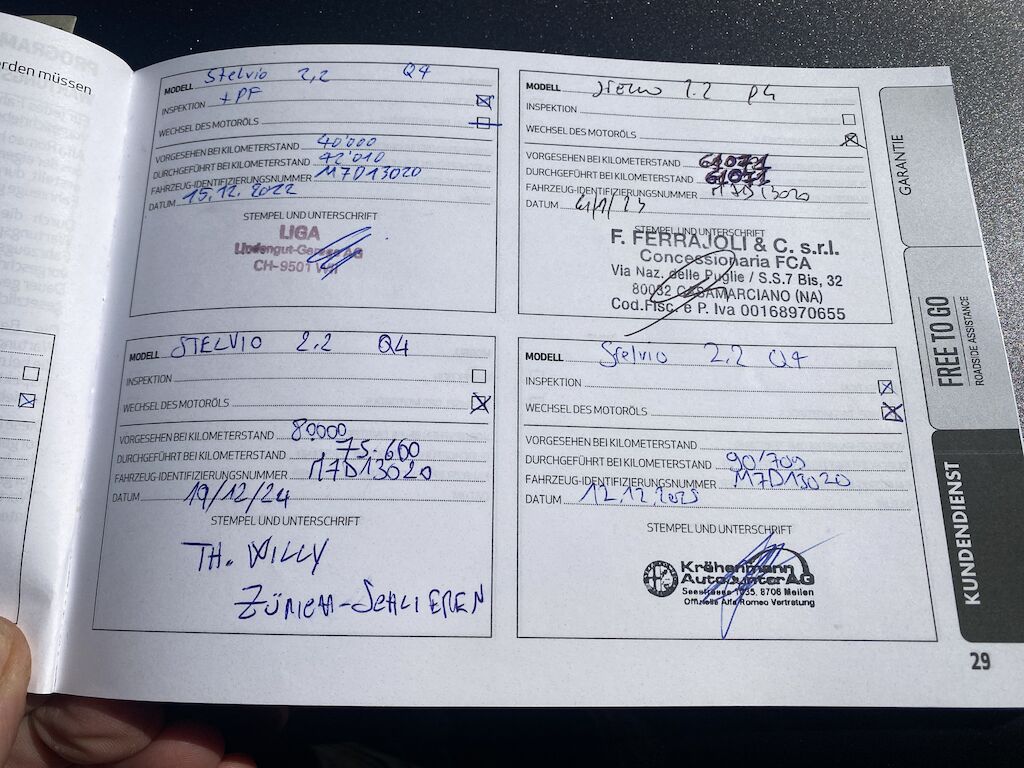 erden müssen
MODELL Stelvio 2,2 Q4
INSPEKTION + PF
WECHSEL DES MOTORÖLS
VORGESEHEN BEI KILOMETERSTAND 40'000
DURCHGEFÜHRT BEI KILOMETERSTAND 42'010
FAHRZEUG-IDENTIFIZIERUNGSNUMMER M7D13020
DATUM 15.12.2022
STEMPEL UND UNTERSCHRIFT
LIGA
Lindengut-Garage AG
CH-9501 Wil
MODELL Stelvio 2.2 Q4
INSPEKTION
WECHSEL DES MOTORÖLS
VORGESEHEN BEI KILOMETERSTAND 61071
DURCHGEFÜHRT BEI KILOMETERSTAND 61071
FAHRZEUG-IDENTIFIZIERUNGSNUMMER M7D13020
DATUM
STEMPEL UND UNTERSCHRIFT
F. FERRAJOLI & C. s.r.l.
Concessionaria FCA
Via Naz. delle Puglie / S.S.7 Bis, 32
80032 CASAMARCIANO (NA)
Cod.Fisc. e P. Iva 00168970655
MODELL STELVIO 2.2 Q4
INSPEKTION
WECHSEL DES MOTORÖLS
VORGESEHEN BEI KILOMETERSTAND 80000
DURCHGEFÜHRT BEI KILOMETERSTAND 75.660
FAHRZEUG-IDENTIFIZIERUNGSNUMMER M7D13020
DATUM 19/12/24
STEMPEL UND UNTERSCHRIFT
TH. WILLY
ZÜRICH-SCHLIEREN
MODELL Stelvio 2.2 Q4
INSPEKTION
WECHSEL DES MOTORÖLS
VORGESEHEN BEI KILOMETERSTAND
DURCHGEFÜHRT BEI KILOMETERSTAND 90'700
FAHRZEUG-IDENTIFIZIERUNGSNUMMER M7D13020
DATUM 12.12.2025
STEMPEL UND UNTERSCHRIFT
Krähenmann
AutoCenter AG
Seestrasse 1035, 8706 Meilen
Offizielle Alfa Romeo Vertretung
GARANTIE
FREE TO GO
ROADSIDE ASSISTANCE
KUNDENDIENST
29